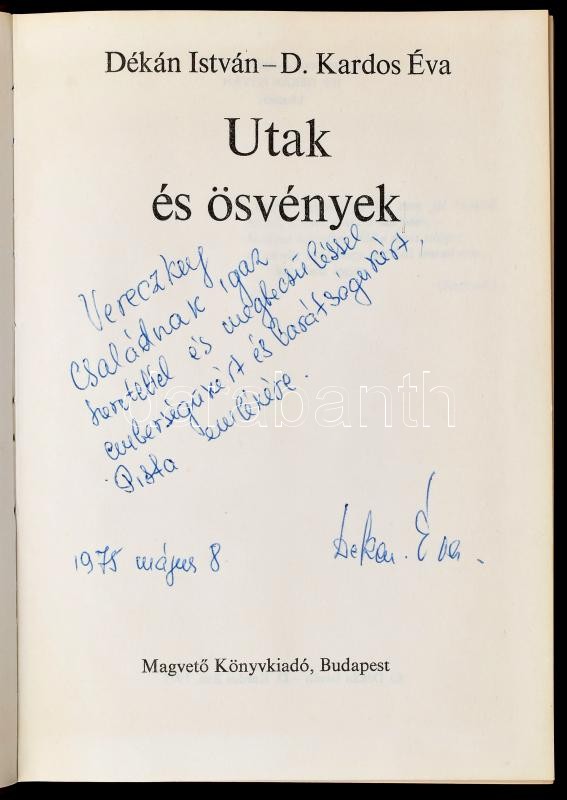 Dékán István – D. Kardos Éva
Utak
és ösvények
Vereczkey
Családnak igaz
szeretettel és megbecsüléssel
emberségükért és barátságukért,
Pista emlékére.
1975 május 8
Dékán Éva.
Magvető Könyvkiadó, Budapest
darabanth